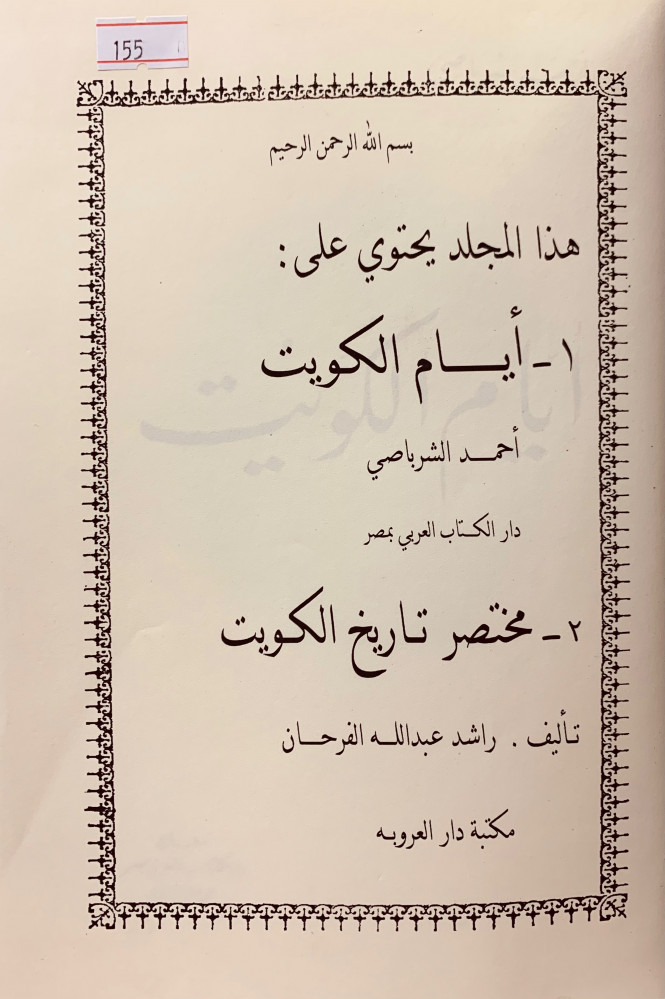 155
بسم الله الرحمن الرحيم
هذا المجلد يحتوي على :
١ - أيـــام الكويت
أحمـد الشرباصي
دار الكتاب العربي بمصر
٢ - مختصر تاريخ الكويت
تأليف . راشد عبدالله الفرحـان
مكتبة دار العروبه
ايام الكويت